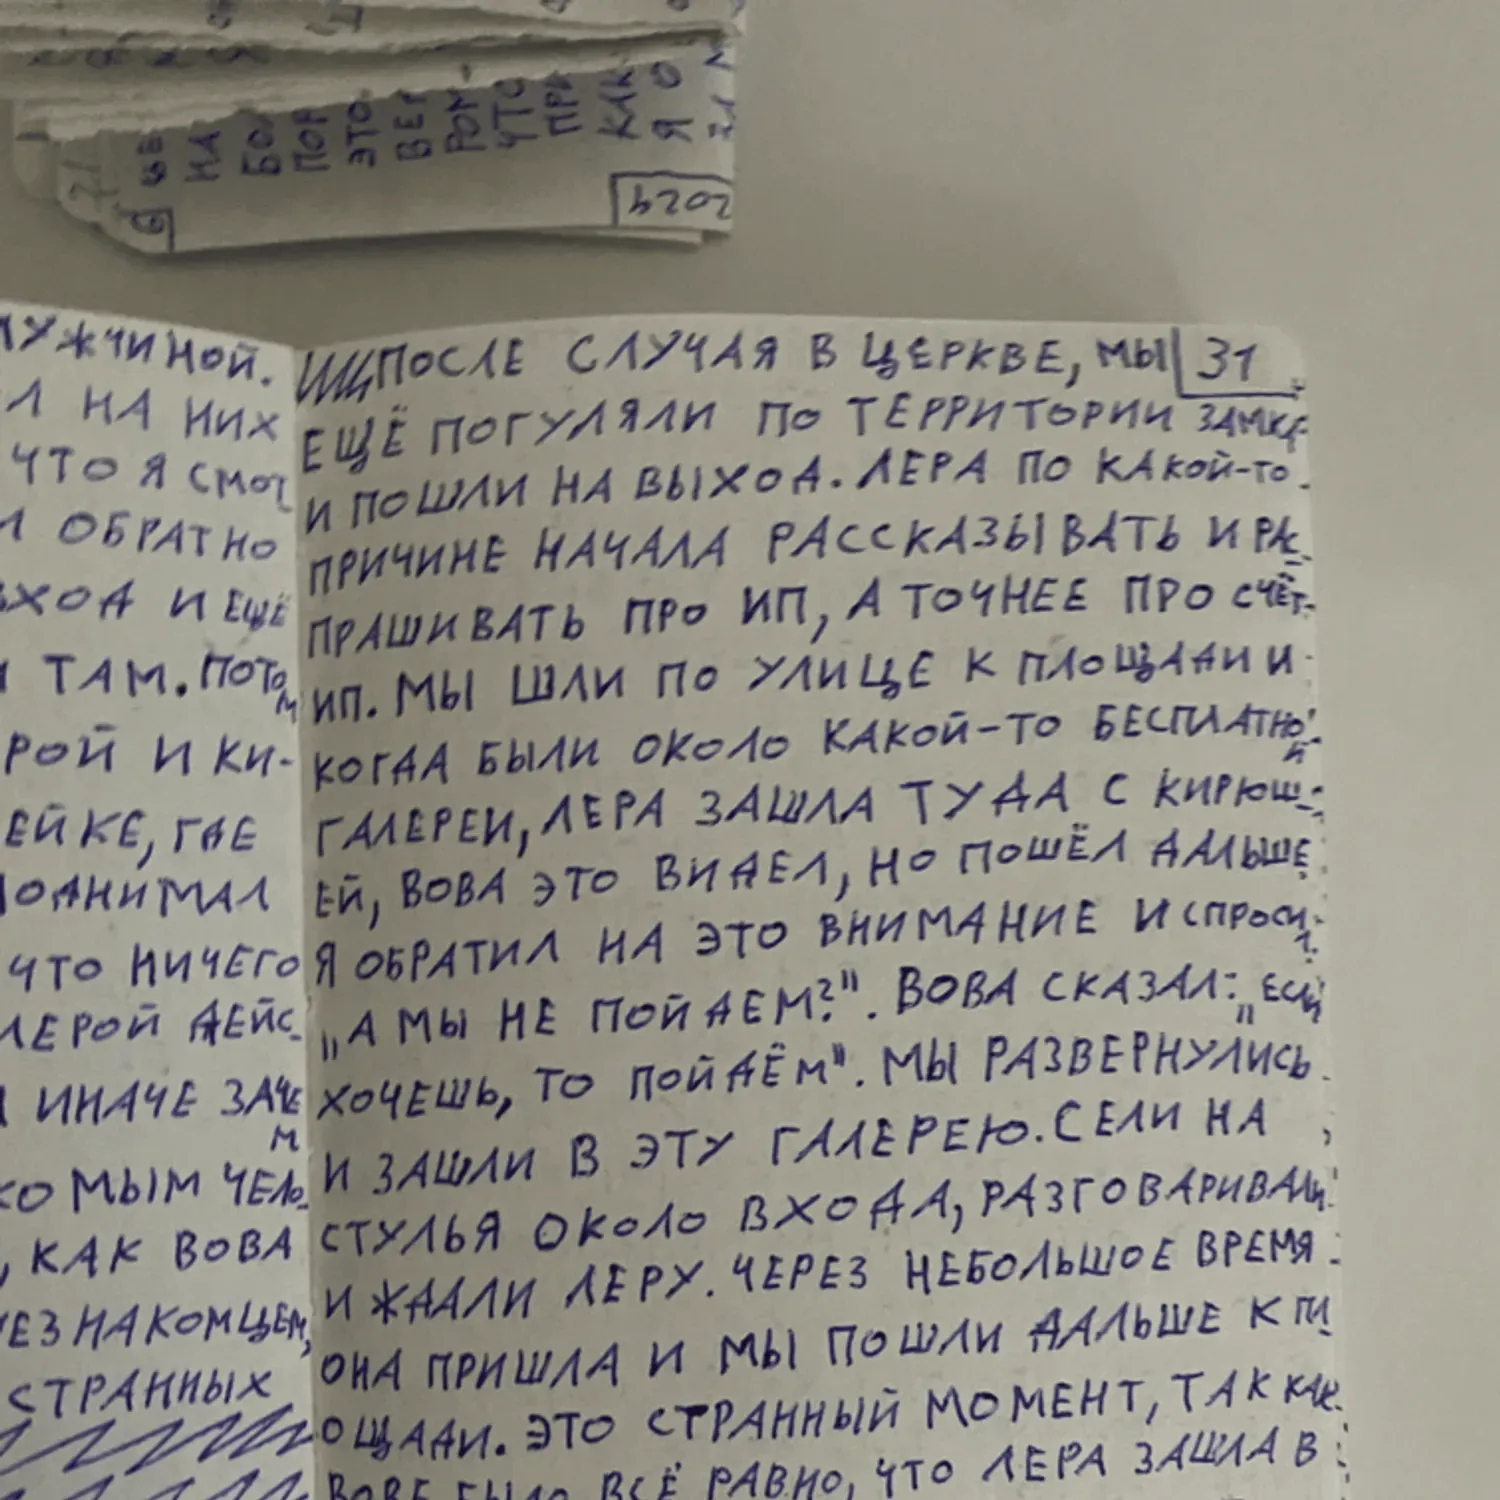 2024
МУЖЧИНОЙ.
НА НИХ
ЧТО Я СМОТ
ОБРАТНО
ВХОД И ЕЩЁ
ТАМ. ПОТОМ
РОЙ И КИ-
ЕЙКЕ, ГДЕ
ПОДНИМАЛ
ЧТО НИЧЕГО
ЛЕРОЙ ДЕЙС
ИНАЧЕ ЗАЧЕМ
КОМЫМ ЧЕЛО
, КАК ВОВА
ЕЗНАКОМЦЕМ,
СТРАННЫХ
31
ПОСЛЕ СЛУЧАЯ В ЦЕРКВЕ, МЫ
ЕЩЁ ПОГУЛЯЛИ ПО ТЕРРИТОРИИ ЗАМКА
И ПОШЛИ НА ВЫХОД. ЛЕРА ПО КАКОЙ-ТО
ПРИЧИНЕ НАЧАЛА РАССКАЗЫВАТЬ И РАС
ПРАШИВАТЬ ПРО ИП, А ТОЧНЕЕ ПРО СЧЁТ
ИП. МЫ ШЛИ ПО УЛИЦЕ К ПЛОЩАДИ И
КОГДА БЫЛИ ОКОЛО КАКОЙ-ТО БЕСПЛАТНОЙ
ГАЛЕРЕИ, ЛЕРА ЗАШЛА ТУДА С КИРЮШ-
ЕЙ, ВОВА ЭТО ВИДЕЛ, НО ПОШЁЛ ДАЛЬШЕ
Я ОБРАТИЛ НА ЭТО ВНИМАНИЕ И СПРОСИЛ:
„А МЫ НЕ ПОЙДЕМ?". ВОВА СКАЗАЛ: „ЕСЛИ
ХОЧЕШЬ, ТО ПОЙДЁМ". МЫ РАЗВЕРНУЛИСЬ
И ЗАШЛИ В ЭТУ ГАЛЕРЕЮ. СЕЛИ НА
СТУЛЬЯ ОКОЛО ВХОДА, РАЗГОВАРИВАЛИ
И ЖДАЛИ ЛЕРУ. ЧЕРЕЗ НЕБОЛЬШОЕ ВРЕМЯ
ОНА ПРИШЛА И МЫ ПОШЛИ ДАЛЬШЕ К ПЛ
ОЩАДИ. ЭТО СТРАННЫЙ МОМЕНТ, ТАК КАК
ВОВЕ БЫЛО ВСЁ РАВНО, ЧТО ЛЕРА ЗАШЛА В